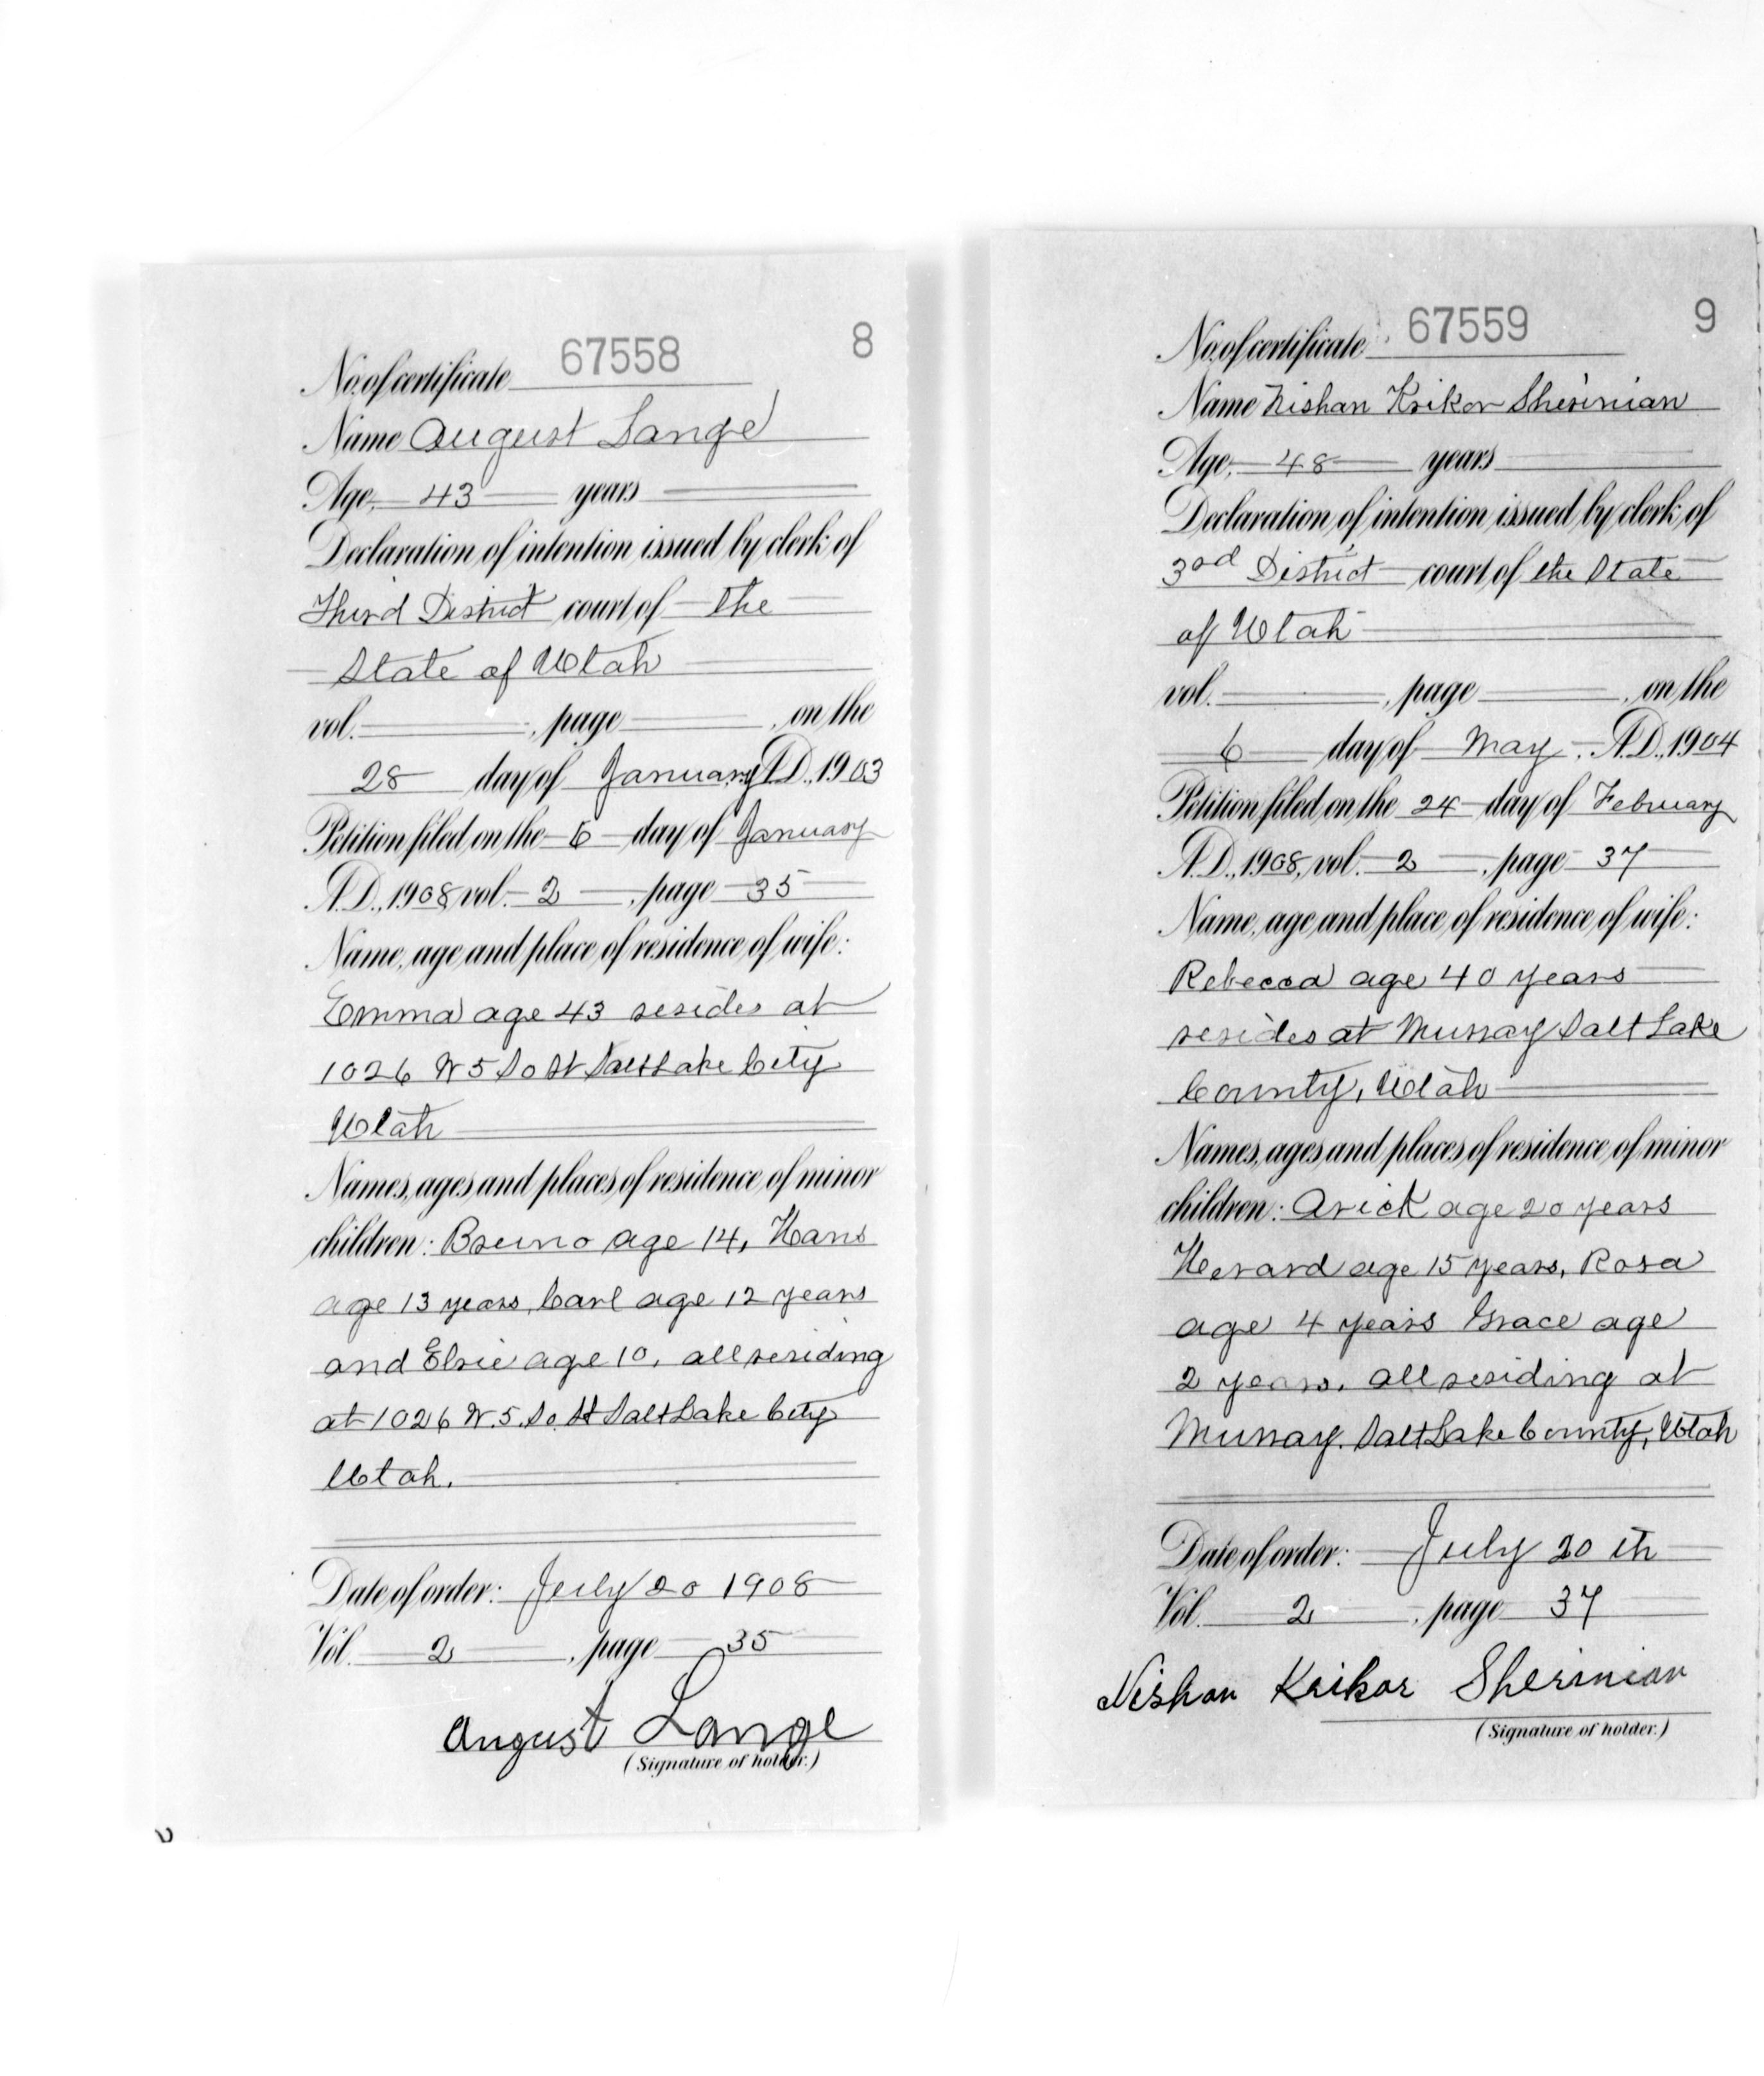 No. of certificate 67558 8
Name August Lange
Age, 43 years
Declaration of intention issued by clerk of
Third District court of the
State of Utah
vol. , page , on the
28 day of January A.D., 1903
Petition filed on the 6 day of January
A.D., 1908, vol. 2 , page 35
Name, age and place of residence of wife:
Emma age 43 resides at
1026 W 5 So St Salt Lake City
Utah
Names, ages and places of residence of minor
children: Bruno age 14, Hans
age 13 years, Carl age 12 years
and Elsie age 10, all residing
at 1026 W. 5. So. St Salt Lake City
Utah.
Date of order: July 20 1908
Vol. 2 , page 35
August Lange
(Signature of holder.)
No. of certificate 67559 9
Name Nishan Krikor Sherinian
Age, 48 years
Declaration of intention issued by clerk of
3rd District court of the State
of Utah
vol. , page , on the
6 day of May, A.D., 1904
Petition filed on the 24 day of February
A.D., 1908, vol. 2 , page 37
Name, age and place of residence of wife:
Rebecca age 40 years
resides at Murray Salt Lake
County, Utah
Names, ages and places of residence of minor
children: Arick age 20 years
Herard age 15 years, Rosa
age 4 years Grace age
2 years. all residing at
Murray. Salt Lake County, Utah
Date of order: July 20 th
Vol. 2 , page 37
Nishan Krikor Sherinian
(Signature of holder.)